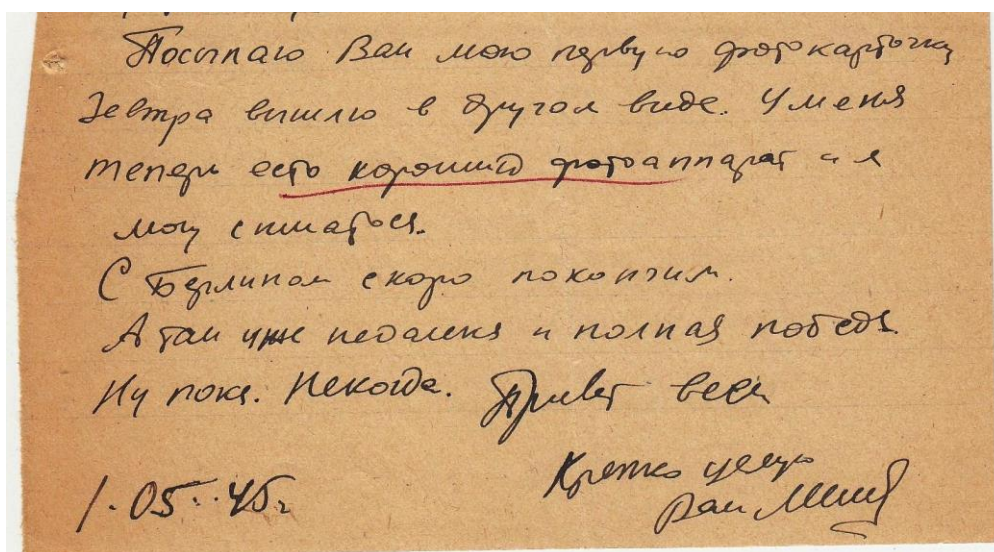 Посылаю Вам мою первую фотокарточку
Завтра вышлю в другом виде. У меня
теперь есть хороший фотоаппарат и я
могу сниматься.
С Берлином скоро покончим.
А там уже недалека и полная победа.
Ну пока. Некогда. Привет всем
Крепко целую
1.05.45г. Ваш